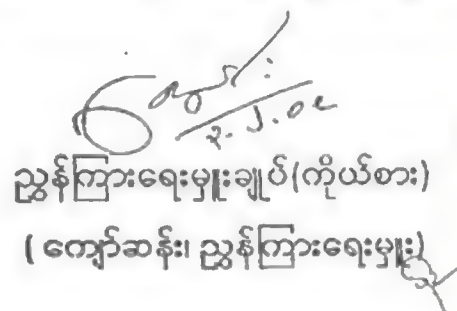 ညွှန်ကြားရေးမှူးချုပ်(ကိုယ်စား)
( ကျော်ဆန်း၊ ညွှန်ကြားရေးမှူး)